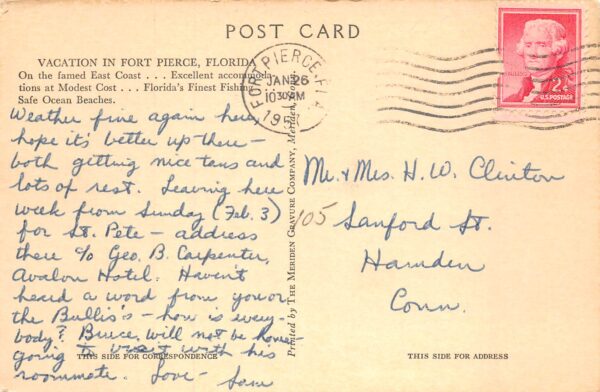 POST CARD
VACATION IN FORT PIERCE, FLORIDA
On the famed East Coast . . . Excellent accommoda-
tions at Modest Cost . . . Florida's Finest Fishing
Safe Ocean Beaches.
FORT PIERCE, FLA.
JAN 26
10 30 AM
2¢
U.S. POSTAGE
Weather fine again here,
hope it's better up there –
both getting nice tans and
lots of rest. Leaving here
week from Sunday (Feb. 3)
for St. Pete – address
there c/o Geo. B. Carpenter,
Avalon Hotel. Haven't
heard a word from you or
the Bullis's – how is every-
body? Bruce will not be home,
going with his
roommate. Love – Sam
Printed by THE MERIDEN GRAVURE COMPANY, Meriden, Conn.
Mr. & Mrs. H. W. Clinton
105 Sanford St.
Hamden
Conn.
THIS SIDE FOR CORRESPONDENCE
THIS SIDE FOR ADDRESS